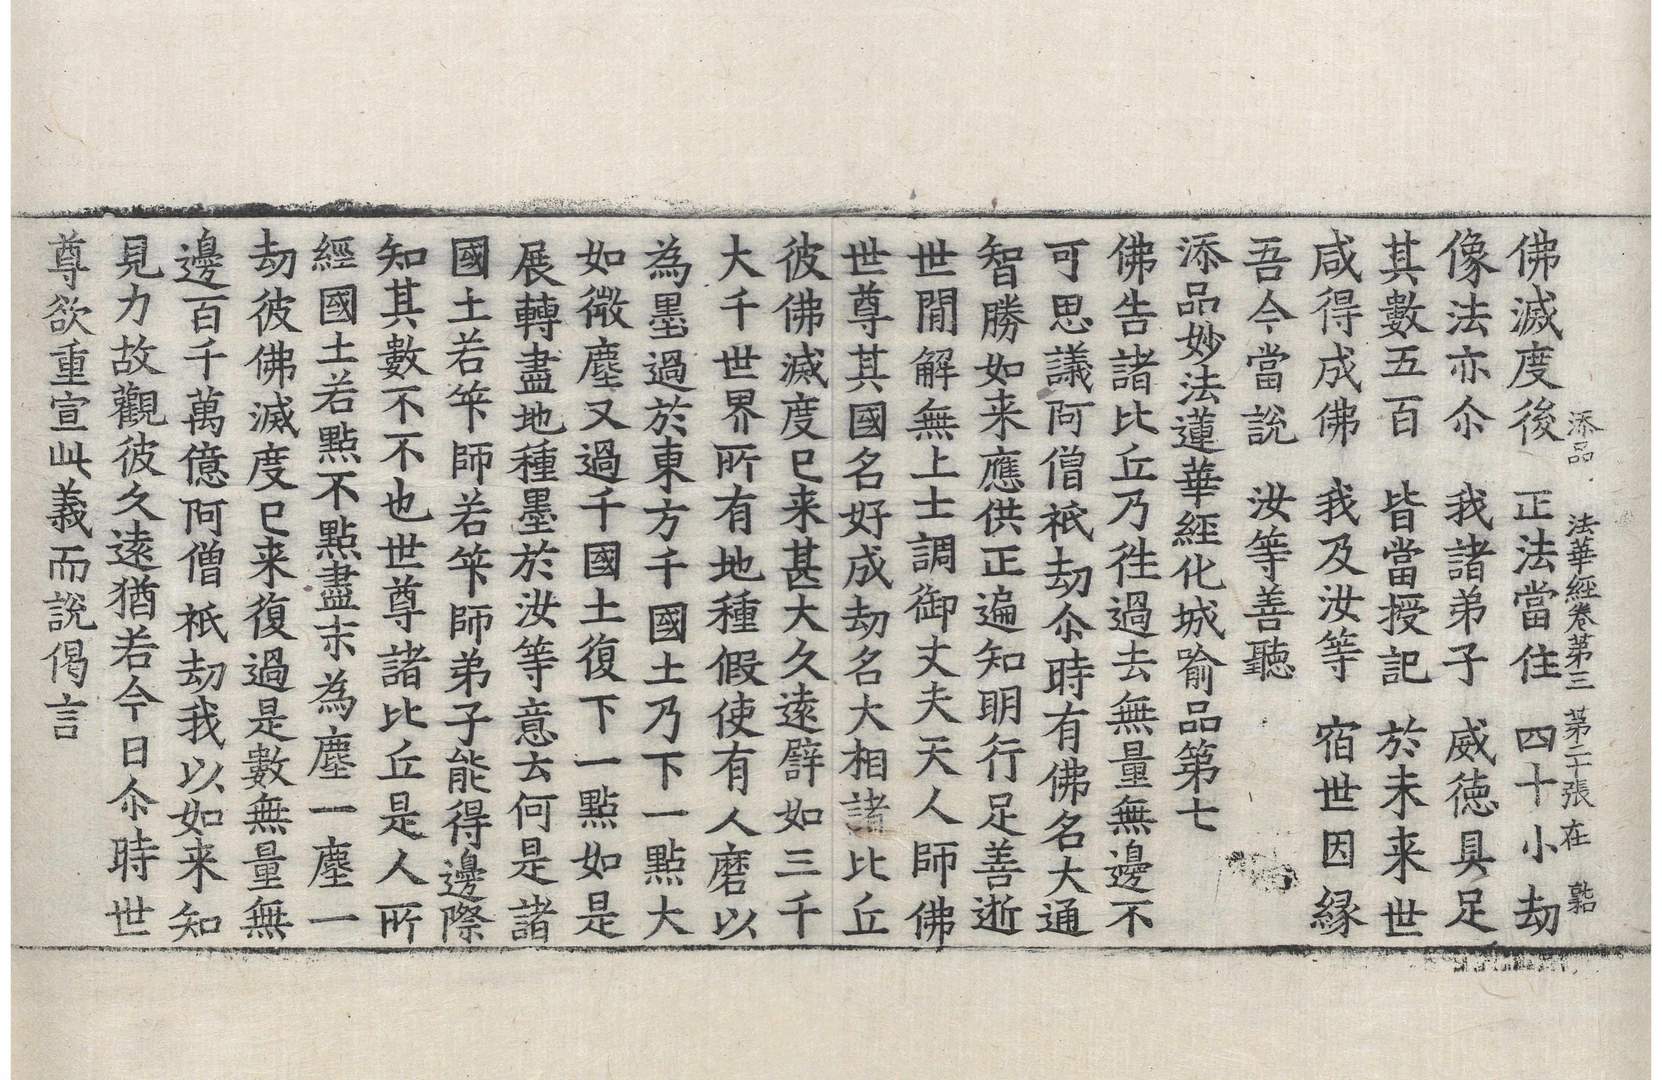 添品 法華經卷第三 第二十張 在
佛滅度後 正法當住 四十小劫
像法亦尒 我諸弟子 威德具足
其數五百 皆當授記 於未来世
咸得成佛 我及汝等 宿世因緣
吾今當說 汝等善聽
添品妙法蓮華經化城喻品第七
佛告諸比丘乃徃過去無量無邊不
可思議阿僧祇劫尒時有佛名大通
智勝如来應供正遍知明行足善逝
世閒解無上士調御丈夫天人師佛
世尊其國名好成劫名大相諸比丘
彼佛滅度已来甚大久遠譬如三千
大千世界所有地種假使有人磨以
為墨過於東方千國土乃下一點大
如微塵又過千國土復下一點如是
展轉盡地種墨於汝等意云何是諸
國土若筭師若筭師弟子能得邊際
知其數不不也世尊諸比丘是人所
經國土若點不點盡末為塵一塵一
劫彼佛滅度已来復過是數無量無
邊百千萬億阿僧祇劫我以如来知
見力故觀彼久遠猶若今日尒時世
尊欲重宣此義而說偈言